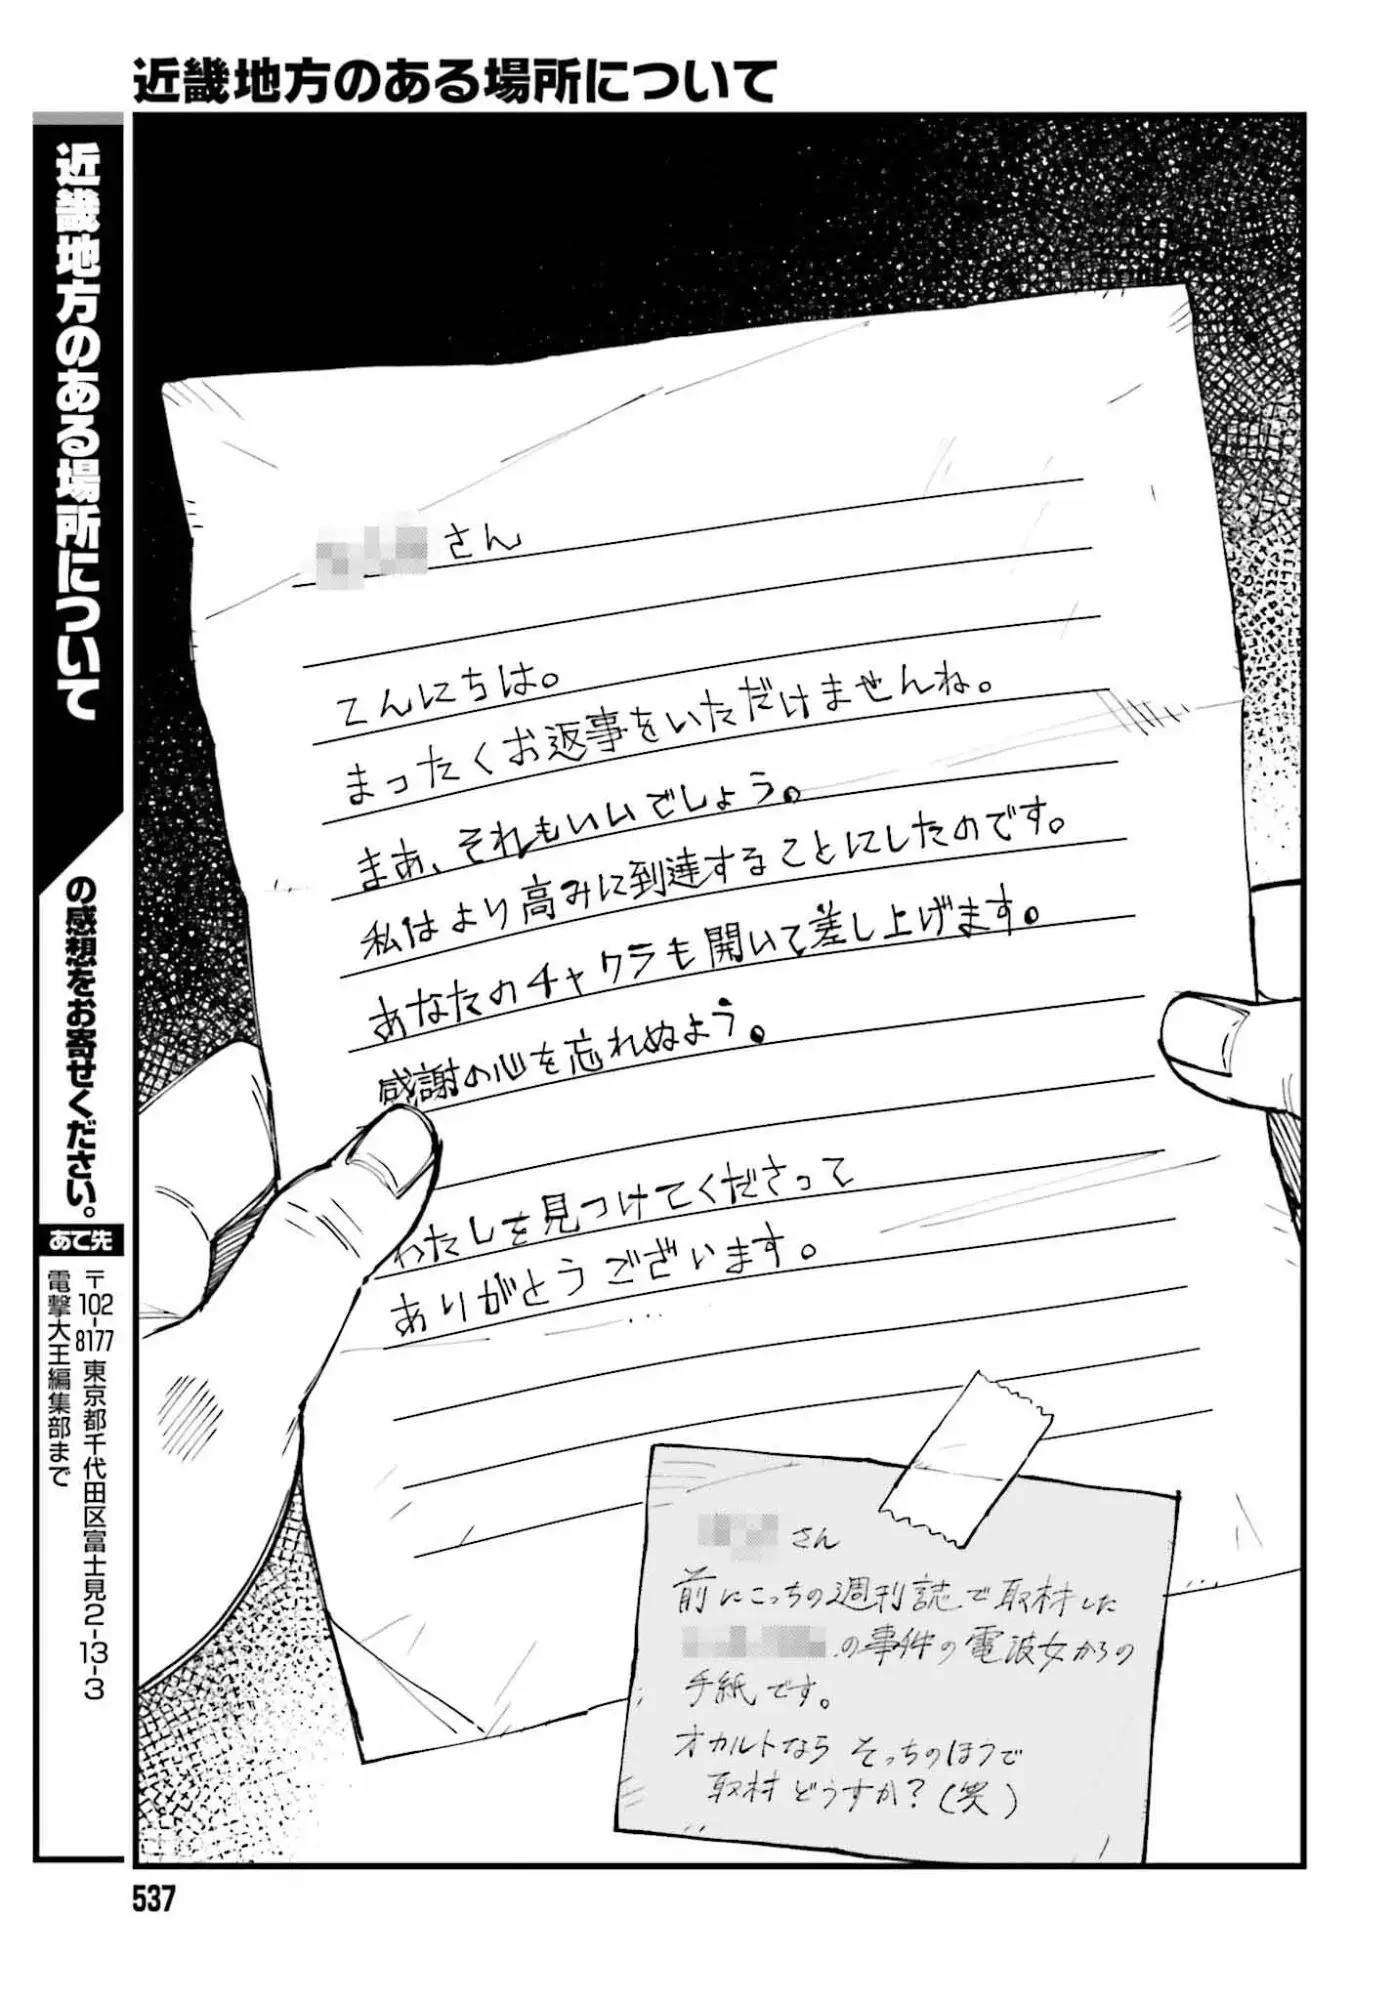 近畿地方のある場所について
さん
こんにちは。
まったくお返事をいただけませんね。
まあ、それもいいでしょう。
私はより高みに到達することにしたのです。
あなたのチャクラも開いて差し上げます。
感謝の心を忘れぬよう。
わたしを見つけてくださって
ありがとうございます。
さん
前にこっちの週刊誌で取材した
の事件の電波女からの
手紙です。
オカルトならそっちのほうで
取材どうすか?(笑)
近畿地方のある場所について
の感想をお寄せください。
あて先
〒102-8177 東京都千代田区富士見2-13-3
電撃大王編集部まで
537